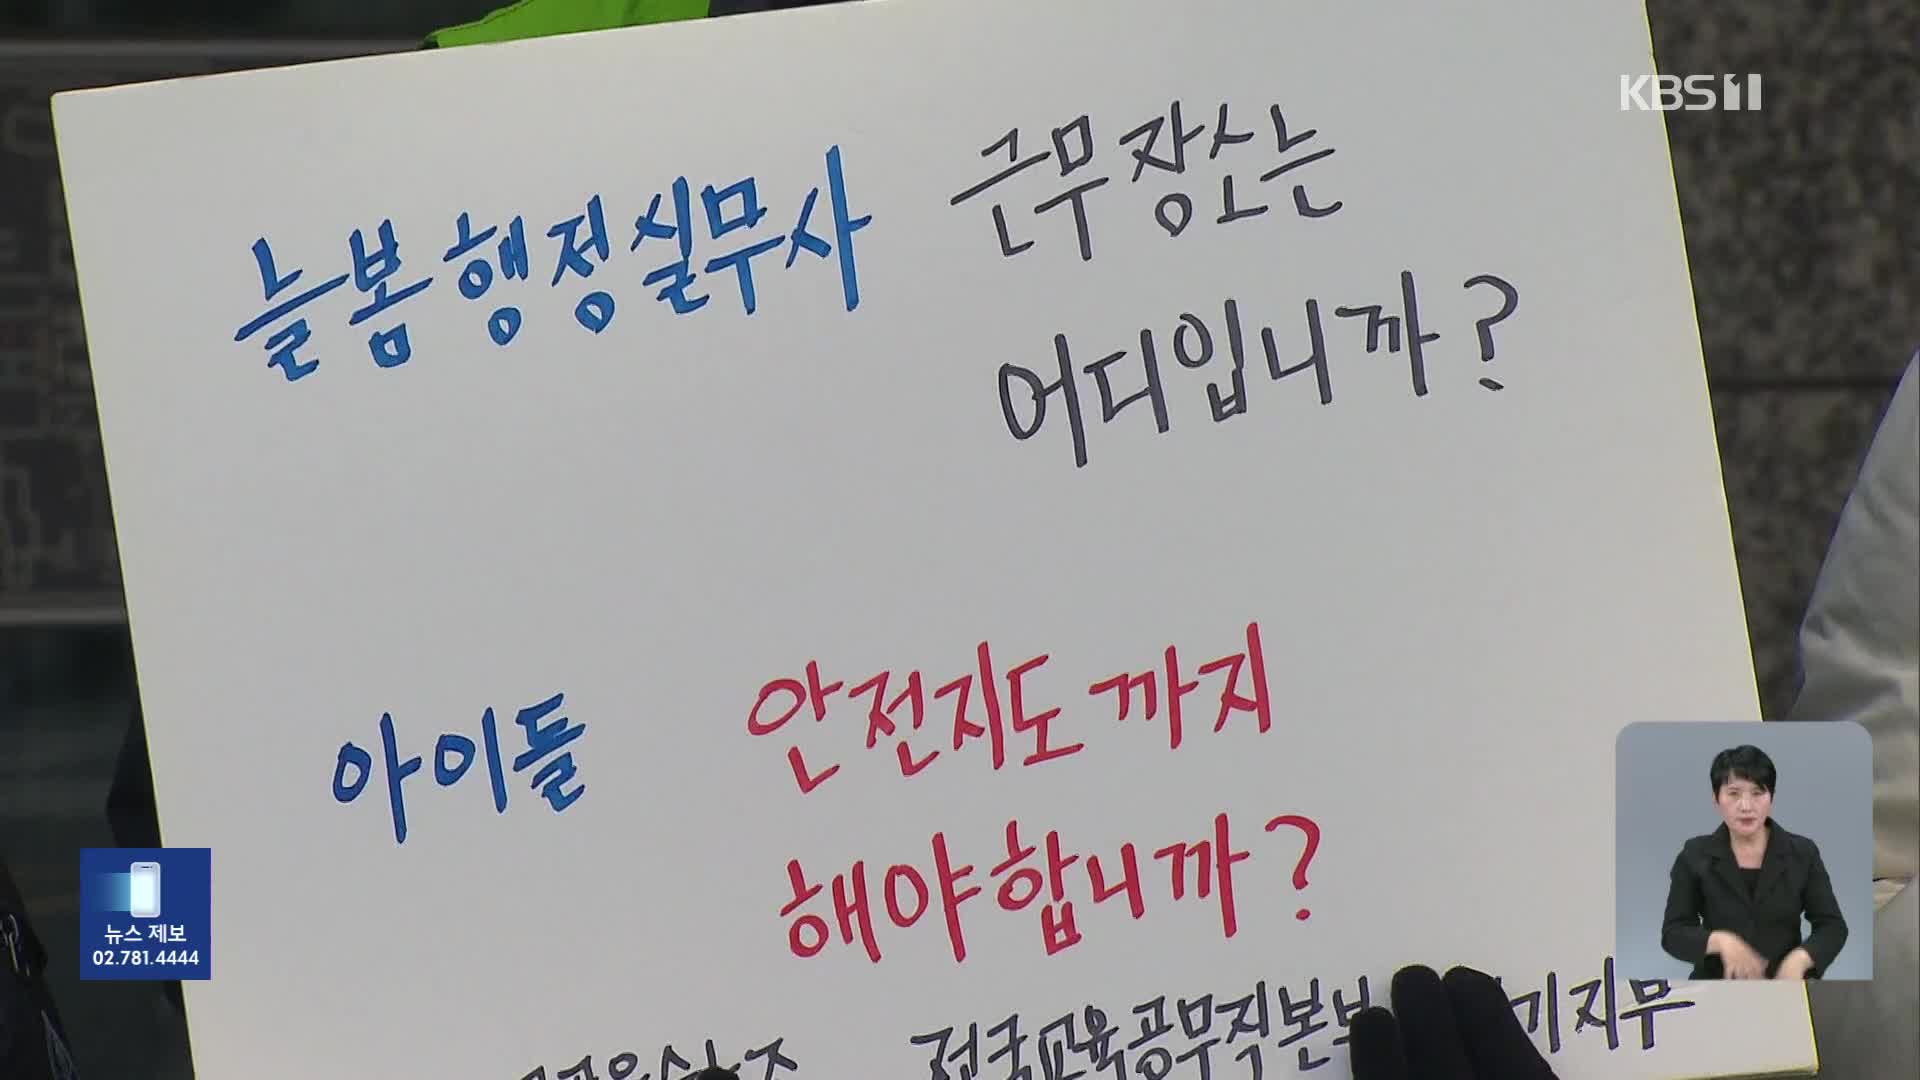 KBS 1
늘봄 행정실무사 근무 장소는
어디입니까?
아이들 안전지도 까지
해야 합니까?
전국교육공무직본부 기지부
뉴스 제보
02.781.4444